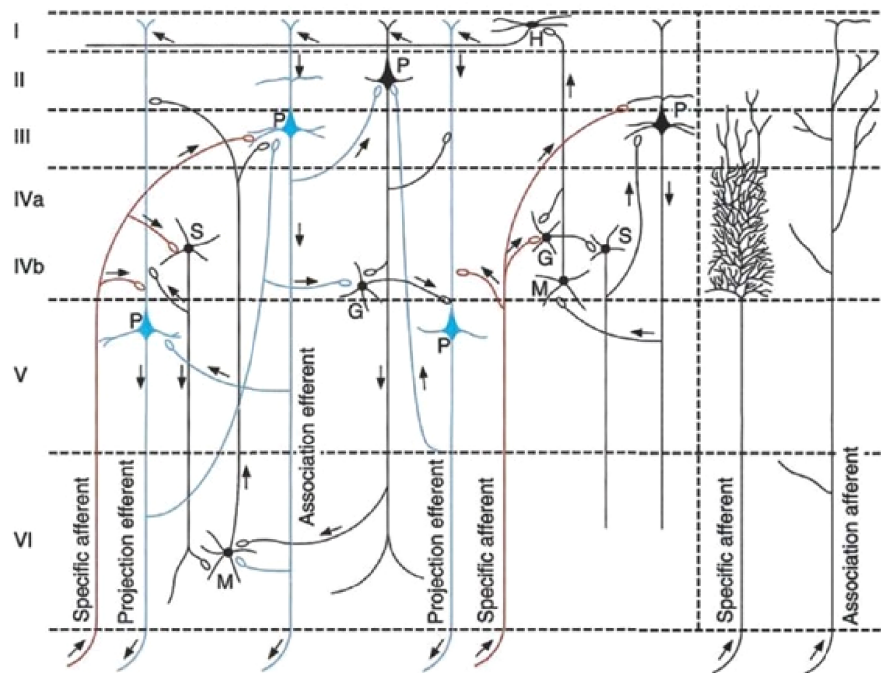 I
H
II
P
III
P
P
IVa
S
S
G
IVb
M
G
P
P
V
VI
M
Specific afferent
Projection efferent
Association efferent
Projection efferent
Specific afferent
Specific afferent
Association afferent